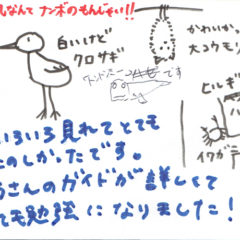 なんて ナンボのもんじゃい!!
白いけど
クロサギ
かわいかっ
大コウモリ
です
ヒルギ
イワガニ
いろいろ見れてとても
たのしかったです。
さんのガイドが詳しくて
ても勉強になりました!